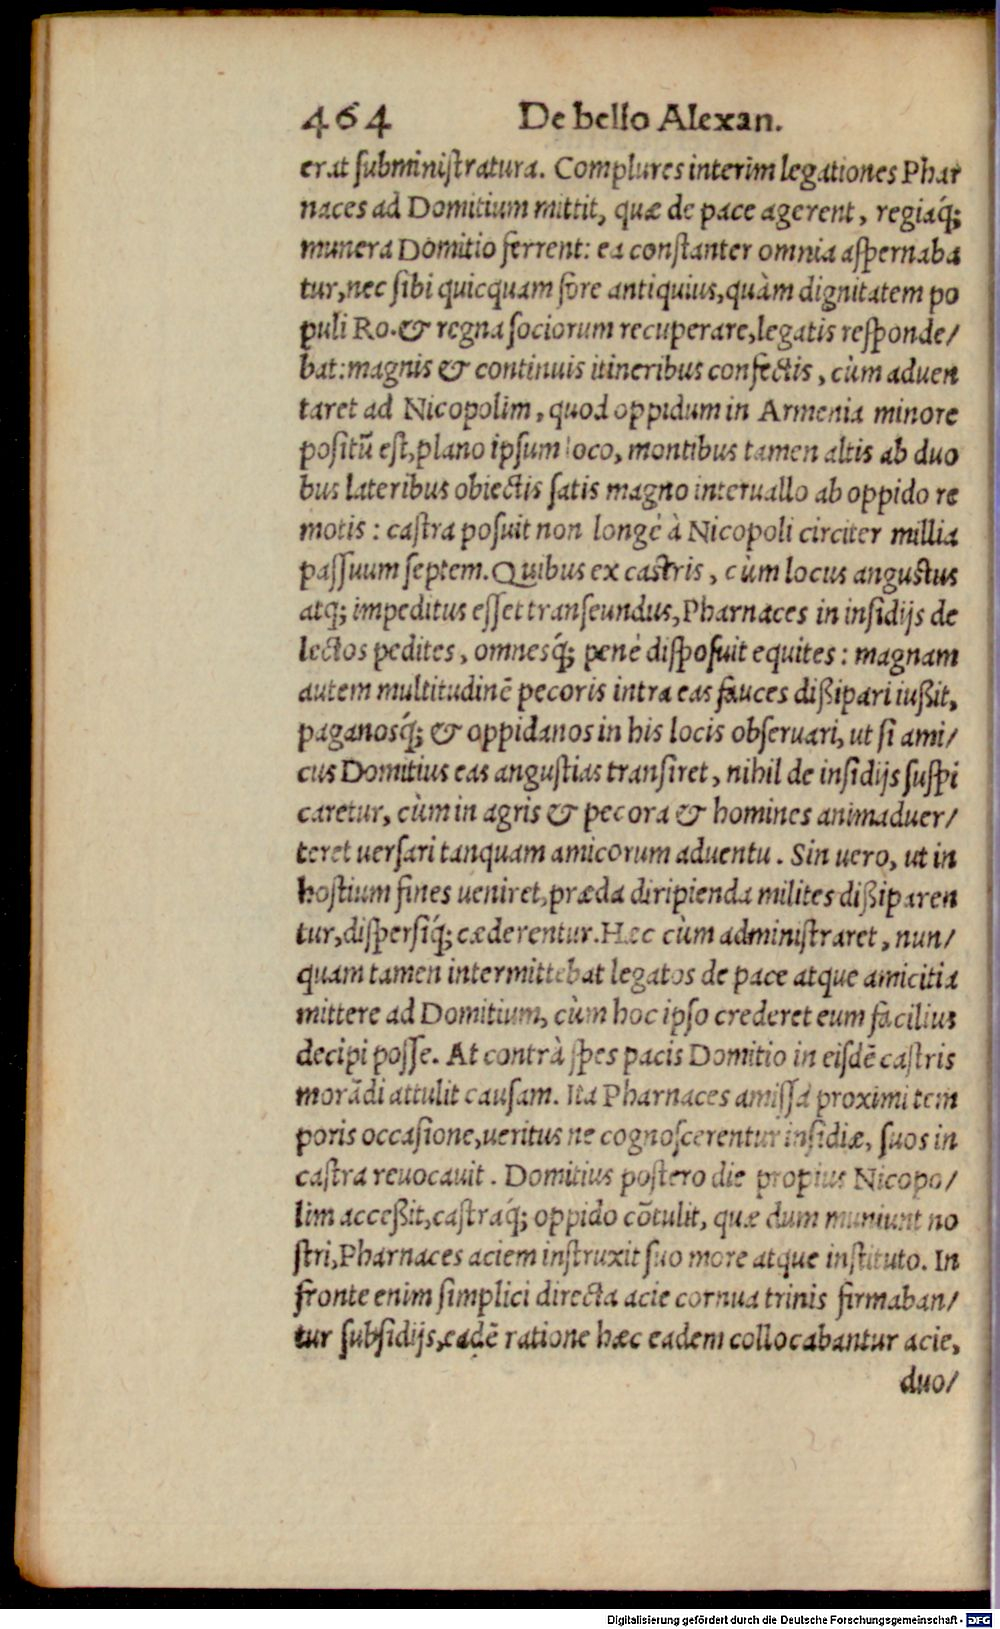 464 De bello Alexan.
erat ſubminiſtratura. Complures interim legationes Phar
naces ad Domitium mittit, quæ de pace agerent, regiaq́;
munera Domitio ferrent: ea conſtanter omnia aſpernaba
tur, nec ſibi quicquam fore antiquius, quàm dignitatem po
puli Ro. & regna ſociorum recuperare, legatis reſponde/
bat: magnis & continuis itineribus confectis, cùm aduen
taret ad Nicopolim, quod oppidum in Armenia minore
poſitũ eſt, plano ipſum loco, montibus tamen altis ab duo
bus lateribus obiectis ſatis magno interuallo ab oppido re
motis: caſtra poſuit non longè à Nicopoli circiter millia
paſſuum ſeptem. Quibus ex caſtris, cùm locus anguſtus
atq; impeditus eſſet tranſeundus, Pharnaces in inſidijs de
lectos pedites, omnesq́; penè diſpoſuit equites: magnam
autem multitudinẽ pecoris intra eas fauces dißipari iußit,
paganosq́; & oppidanos in his locis obſeruari, ut ſi ami/
cus Domitius eas anguſtias tranſiret, nihil de inſidijs ſuſpi
caretur, cùm in agris & pecora & homines animaduer/
teret uerſari tanquam amicorum aduentu. Sin uero, ut in
hoſtium fines ueniret, præda diripienda milites dißiparen
tur, diſperſiq́; cæderentur. Hæc cùm adminiſtraret, nun/
quam tamen intermittebat legatos de pace atque amicitia
mittere ad Domitium, cùm hoc ipſo crederet eum facilius
decipi poſſe. At contrà ſpes pacis Domitio in eiſdẽ caſtris
morãdi attulit cauſam. Ita Pharnaces amiſſa proximi tem
poris occaſione, ueritus ne cognoſcerentur inſidiæ, ſuos in
caſtra reuocauit. Domitius poſtero die propius Nicopo/
lim acceßit, caſtraq́; oppido cõtulit, quæ dum muniunt no
ſtri, Pharnaces aciem inſtruxit ſuo more atque inſtituto. In
fronte enim ſimplici directa acie cornua trinis firmaban/
tur ſubſidijs, eadẽ ratione hæc eadem collocabantur acie,
duo/
Digitalisierung gefördert durch die Deutsche Forschungsgemeinschaft - DFG